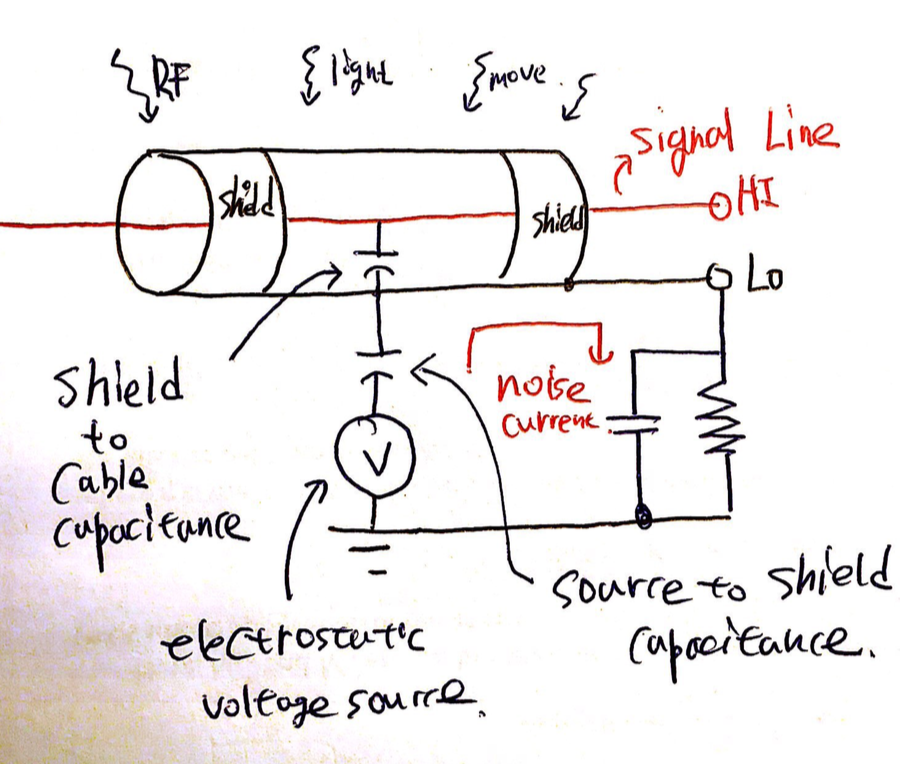 RF
light
move.
signal Line
HI
shield
shield
Lo
shield
to
Cable
capacitance
noise
current
V
source to shield
capacitance.
electrostatic
voltage source.